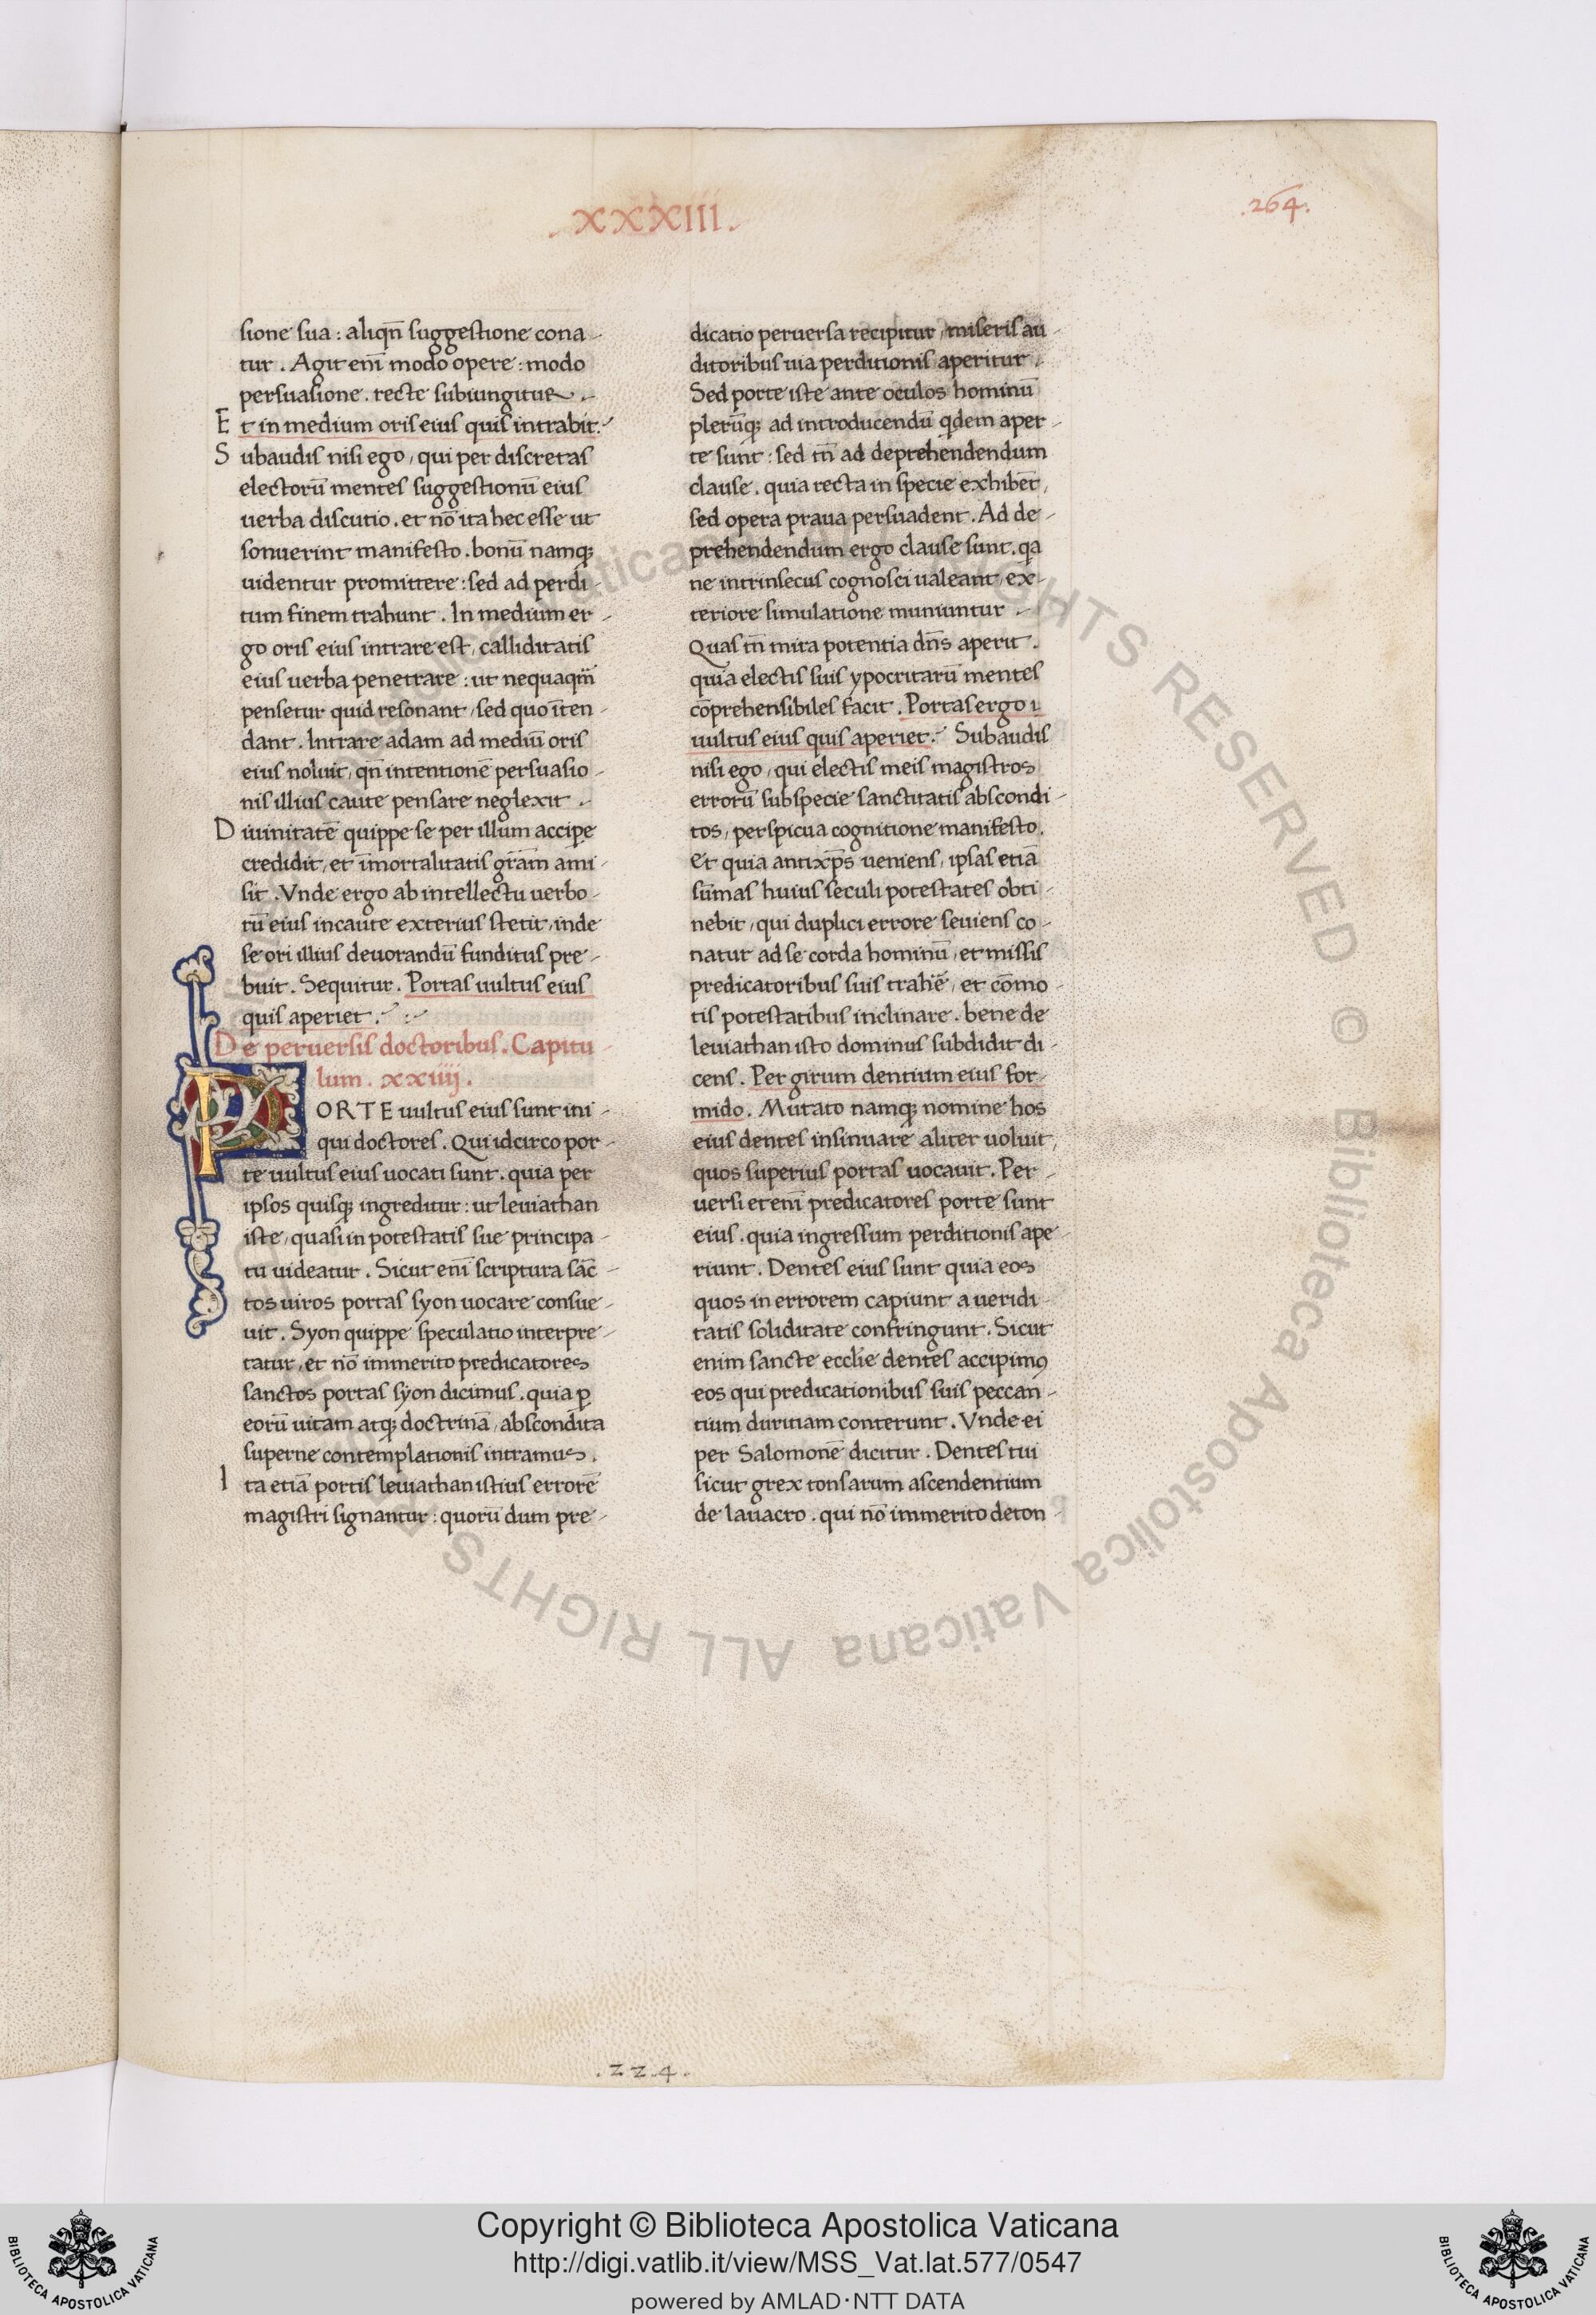 . XXXIII .
.264.
sione sua : aliqn̄ suggestione cona-
tur . Agit eni᷑ modo opere : modo
persuasione . recte subiungitur .-
Et in medium oris eius quis intrabit.
Subaudis nisi ego, qui per discretas
electorū mentes suggestionū eius
uerba discutio . et nō ita hec esse ut
sonuerint manifesto . bonū namqꝫ
uidentur promittere : sed ad perdi-
tum finem trahunt . In medium er-
go oris eius intrare est, calliditatis
eius uerba penetrare : ut nequaqm̄
pensetur quid resonant, sed quo īten-
dant . Intrare adam ad mediū oris
eius noluit, qn̄ intentionē persuasio-
nis illius caute pensare neglexit .-
Diuinitatē quippe se per illum accipe
credidit, et īmortalitatis grām ami-
sit . Vnde ergo ab intellectu uerbo-
rū eius incaute exterius stetit, inde
se ori illius deuorandū funditus pre-
buit . Sequitur . Portas uultus eius
quis aperiet .
De peruersis doctoribus . Capitu-
lum . xxiiij .
PORTE uultus eius sunt ini-
qui doctores . Qui idcirco por-
te uultus eius uocati sunt . quia per
ipsos quisqꝫ ingreditur : ut leuiathan
iste, quasi in potestatis sue principa-
tu uideatur . Sicut enī scriptura sāc-
tos uiros portas syon uocare consue-
uit . Syon quippe speculatio interpre-
tatur, et nō immerito predicatores
sanctos portas syon dicimus . quia ꝑ
eorū uitam atqꝫ doctrinā, abscondita
superne contemplationis intramus .
Ita etiā portis leuiathan istius errorē
magistri signantur : quorū dum pre-
dicatio peruersa recipitur, miseris au-
ditoribus uia perditionis aperitur .
Sed porte iste ante oculos hominū
plerūqꝫ ad introducendū qdem aper-
te sunt : sed tn̄ ad deprehendendum
clause . quia recta in specie exhibēt,
sed opera praua persuadent . Ad de-
prehendendum ergo clause sunt . qa
ne intrinsecus cognosci ualeant, ex-
teriore simulatione muniuntur .-
Quas tn̄ mira potentia dn̄s aperit .
quia electis suis ypocritarū mentes
cōprehensibiles facit . Portas ergo ı
uultus eius quis aperiet . Subaudis
nisi ego, qui electis meis magistros
errorū sub specie sanctitatis abscondi-
tos, perspicua cognitione manifesto .
Et quia antixp̄s ueniens, ipsas etiā
sūmas huius seculi potestates obti-
nebit, qui duplici errore seuiens co-
natur ad se corda hominū, et missis
predicatoribus suis trahē, et cōmo-
tis potestatibus inclinare . bene de
leuiathan isto dominus subdidit di-
cens . Per girum dentium eius for-
mido . Mutato namqꝫ nomine hos
eius dentes insinuare aliter uoluit,
quos superius portas uocauit . Per-
uersi etenī predicatores porte sunt
eius . quia ingressum perditionis ape-
riunt . Dentes eius sunt quia eos
quos in errorem capiunt a ueridi-
tatis soliditate confringunt . Sicut
enim sancte ecclie dentes accipimꝰ
eos qui predicationibus suis peccan-
tium duritiam conterunt . Vnde ei
per Salomonē dicitur . Dentes tui
sicut grex tonsarum ascendentium
de lauacro . qui nō immerito deton-
. 2 2 .4 .
Copyright © Biblioteca Apostolica Vaticana
http://digi.vatlib.it/view/MSS_Vat.lat.577/0547
powered by AMLAD·NTT DATA
BIBLIOTECA APOSTOLICA VATICANA
BIBLIOTECA APOSTOLICA VATICANA
© Biblioteca Apostolica Vaticana ALL RIGHTS RESERVED